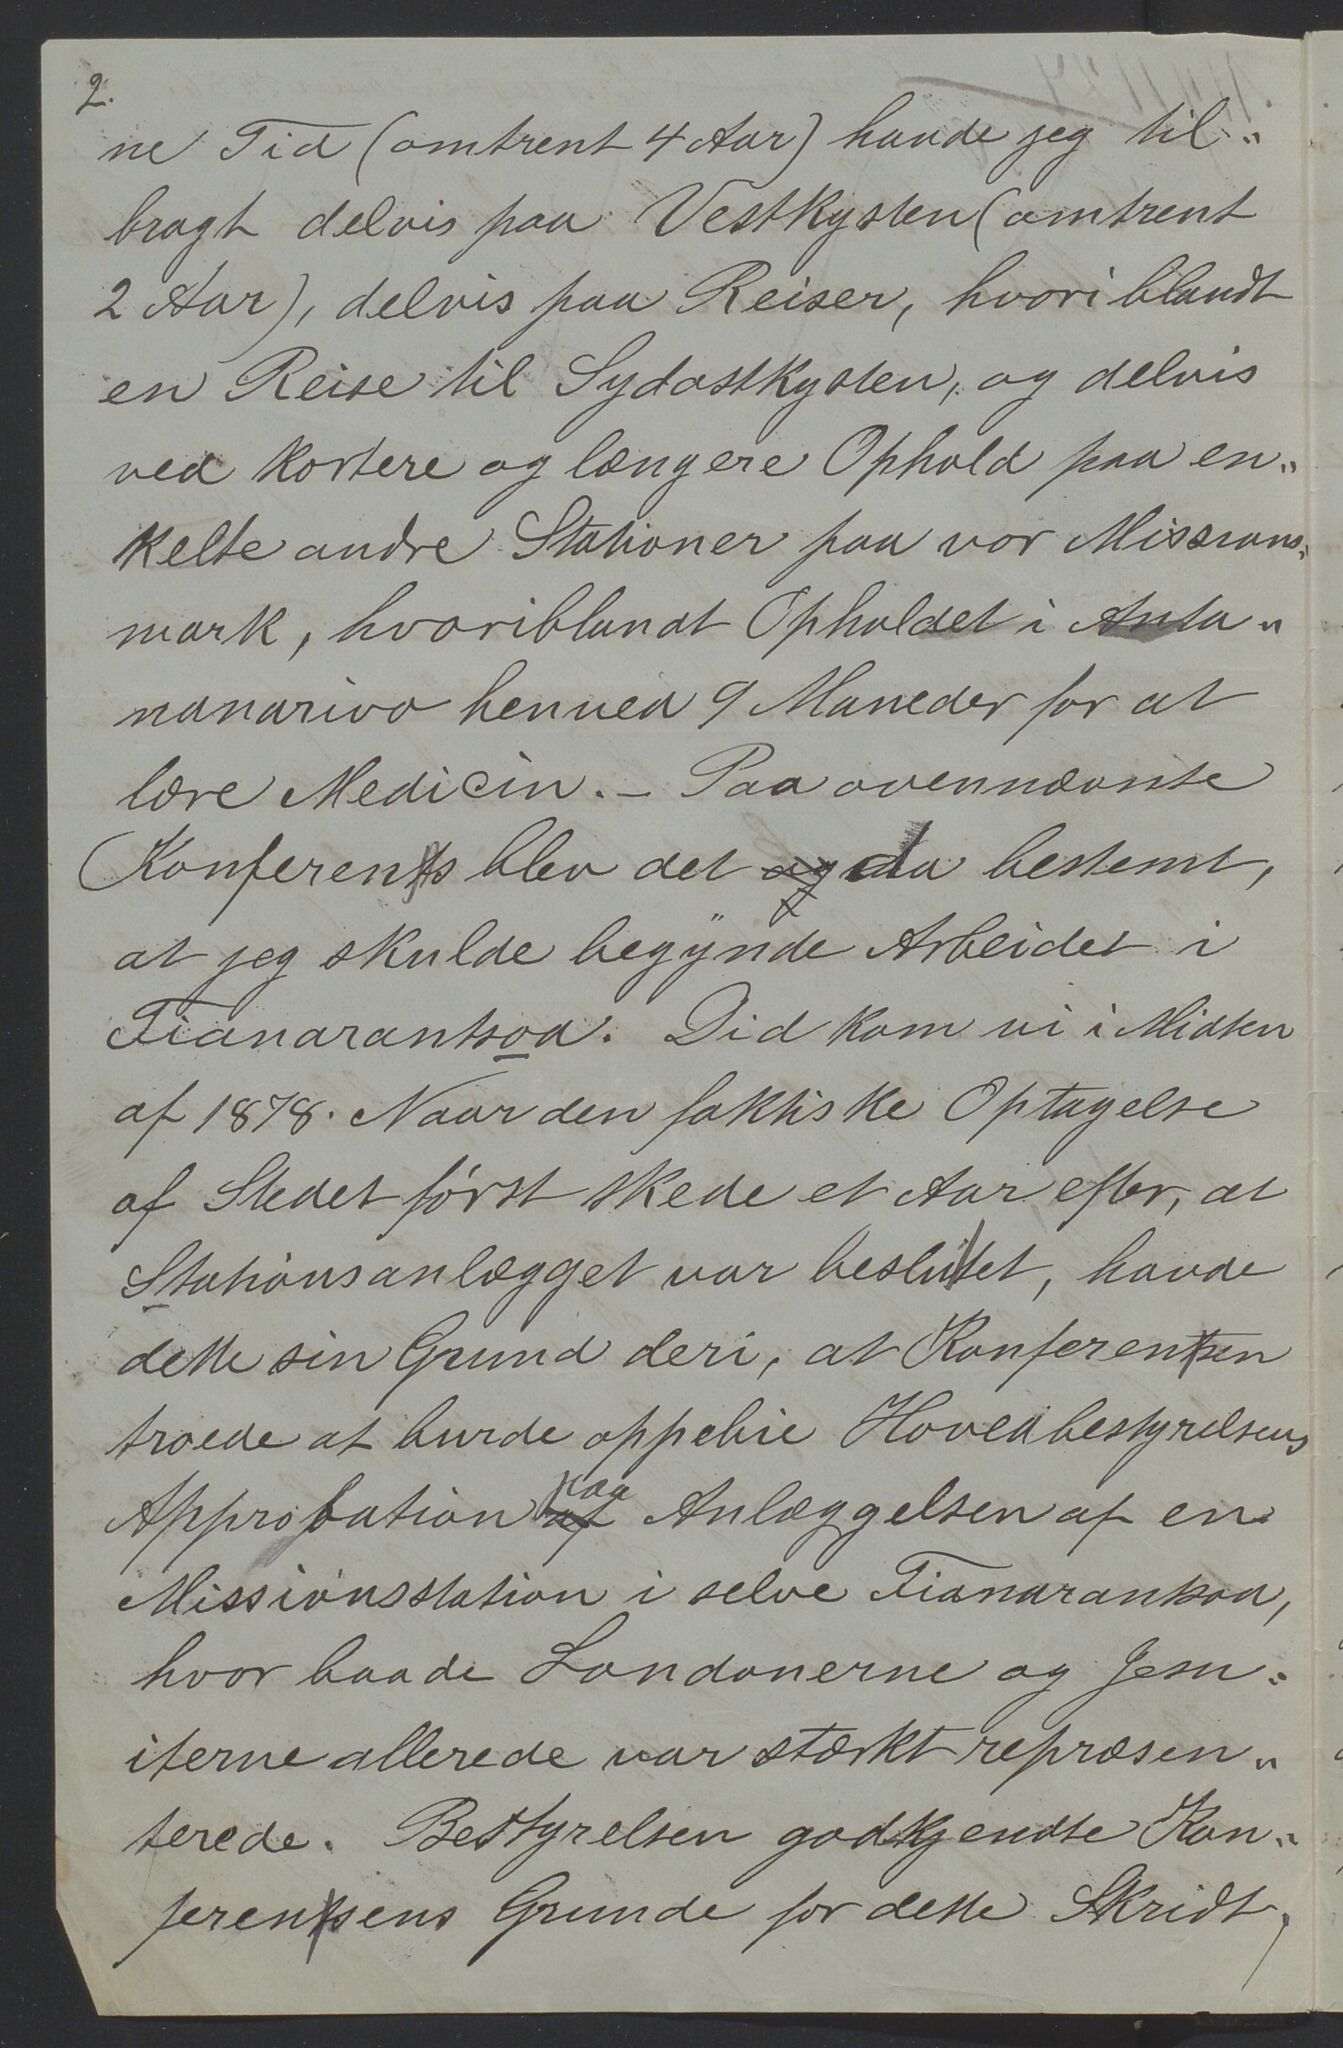 2.
ne Tid (omtrent 4 Aar) havde jeg til„
bragt delvis paa Vestkysten (omtrent
2 Aar), delvis paa Reiser, hvoriblandt
en Reise til Sydostkysten, og delvis
ved kortere og længere Ophold paa en„
kelte andre Stationer paa vor Missions„
mark, hvoriblandt Opholdet i Anta„
nanarivo henved 9 Maneder for at
lære Medicin. – Paa ovennævnte
Konferents blev det og da bestemt,
at jeg skulde begynde Arbeidet i
Fianarantsoa. Did kom vi i Midten
af 1878. Naar den faktiske Optagelse
af Stedet først skede et Aar efter, at
Stationsanlægget var besluttet, havde
dette sin Grund deri, at Konferentsen
troede at burde oppebie Hovedbestyrelsens
paa
Approbation af Anlæggelsen af en
Missionsstation i selve Fianarantsoa,
hvor baade Londonerne og Jesu„
iterne allerede var stærkt repræsen„
terede. Bestyrelsen godkjendte Kon„
ferentsens Grunde for dette Skridt,